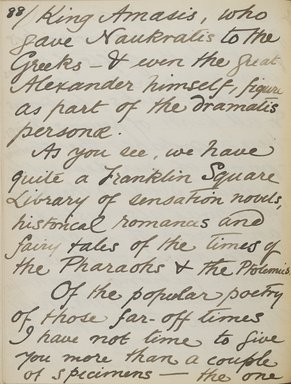 88/ King Amasis, who
gave Naukratis to the
Greeks – & even the great
Alexander himself, figure
as part of the dramatis
personæ.
As you see, we have
quite a Franklin Square
Library of sensation novels,
historical romances and
fairy tales of the times of
the Pharaohs & the Ptolemies.
Of the popular poetry
of those far-off times
I have not time to give
you more than a couple
of specimens — the one